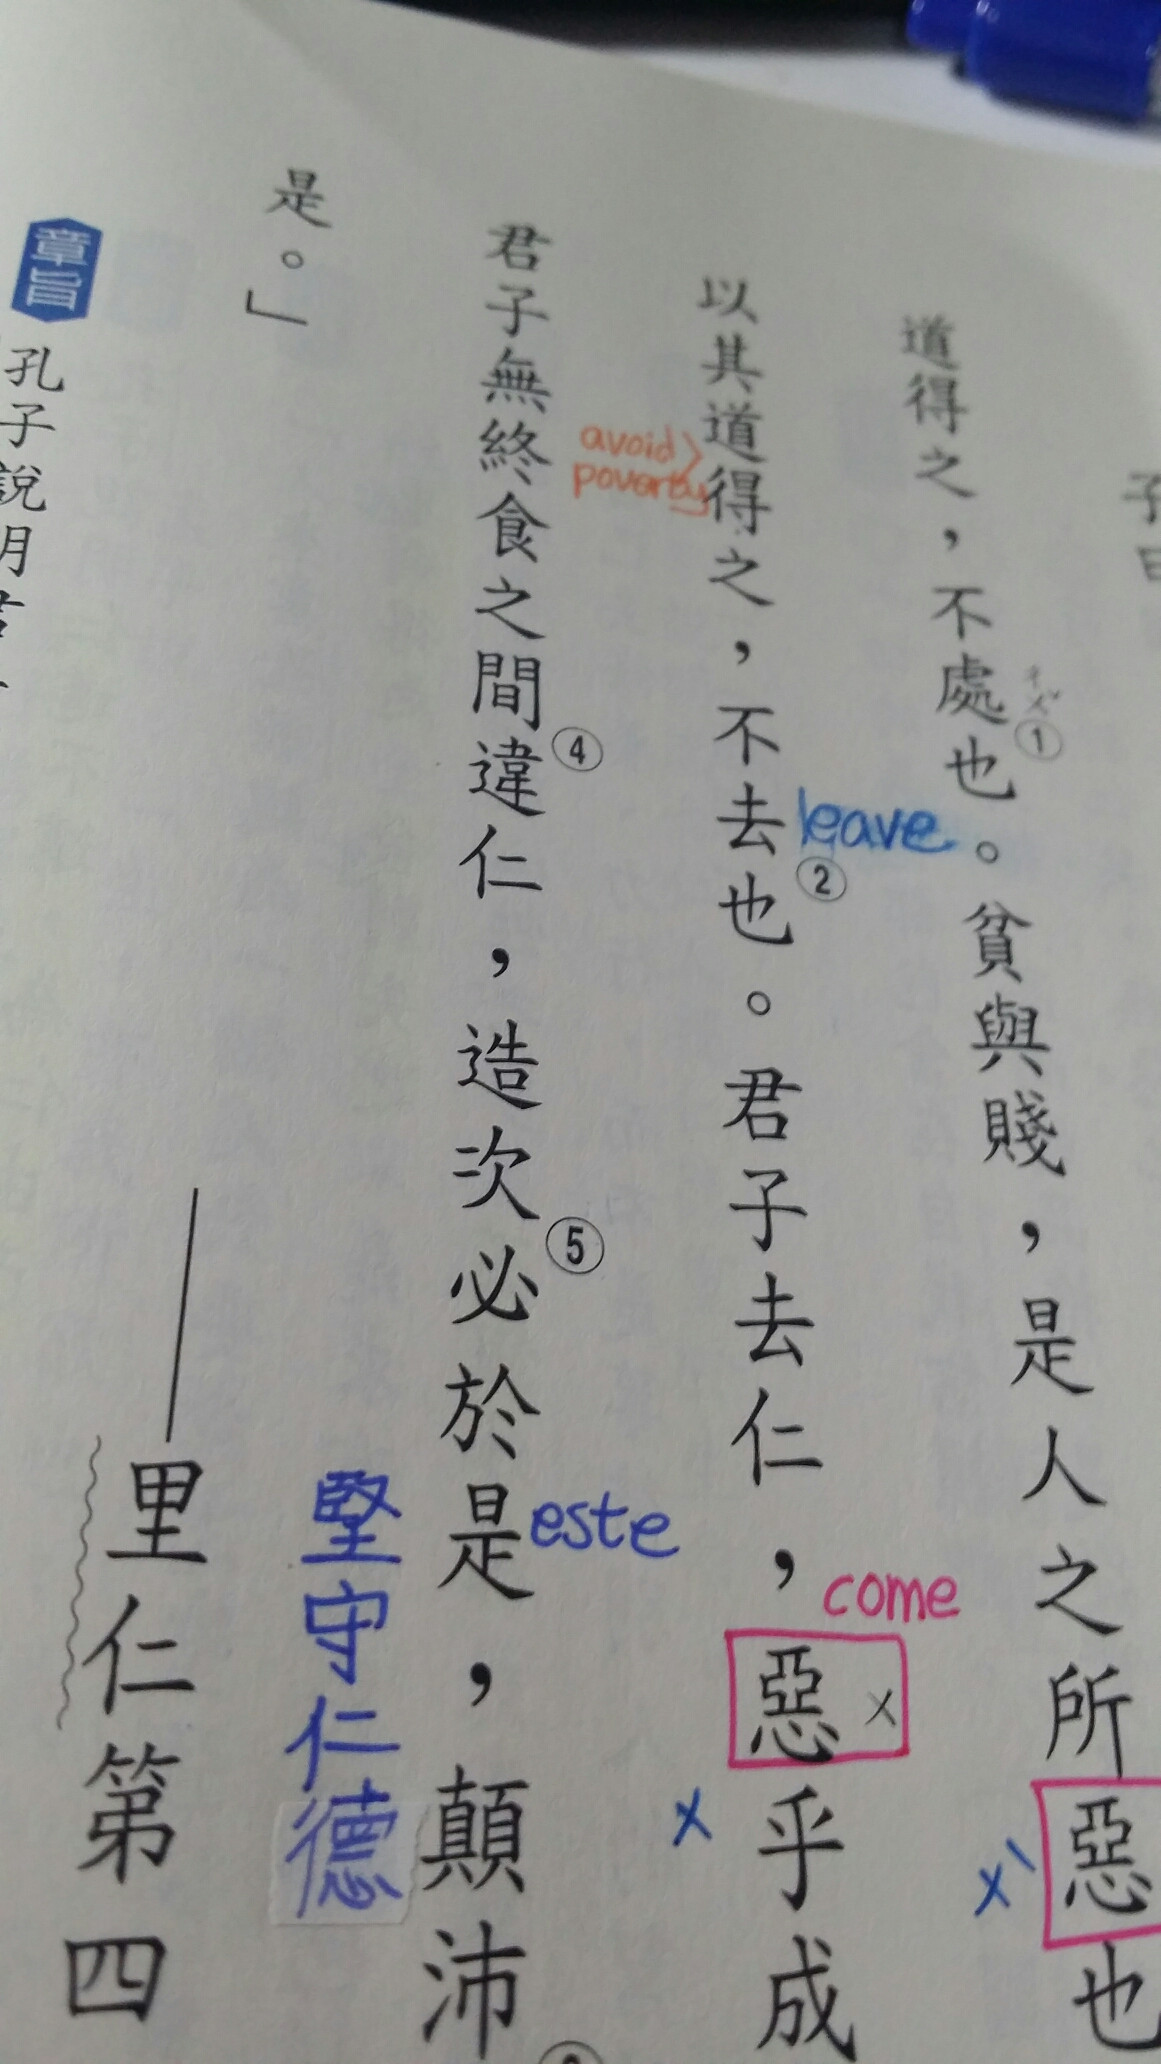 子曰
道得之，不處①也。貧與賤，是人之所惡也
ㄔㄨˇ
ㄨˋ
以其道得之，不去②也。君子去仁，惡乎成
avoid
poverty
leave
come
ㄨ
ㄨ
君子無終食之間④違仁，造次⑤必於是，顛沛
este
是。」
堅守仁德
——里仁第四
章旨
孔子說明君